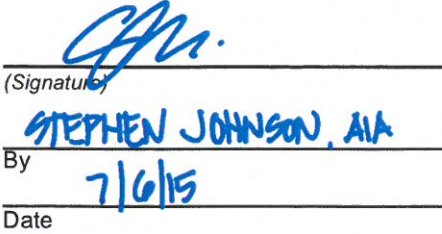 (Signature)
STEPHEN JOHNSON, AIA
By
7/6/15
Date